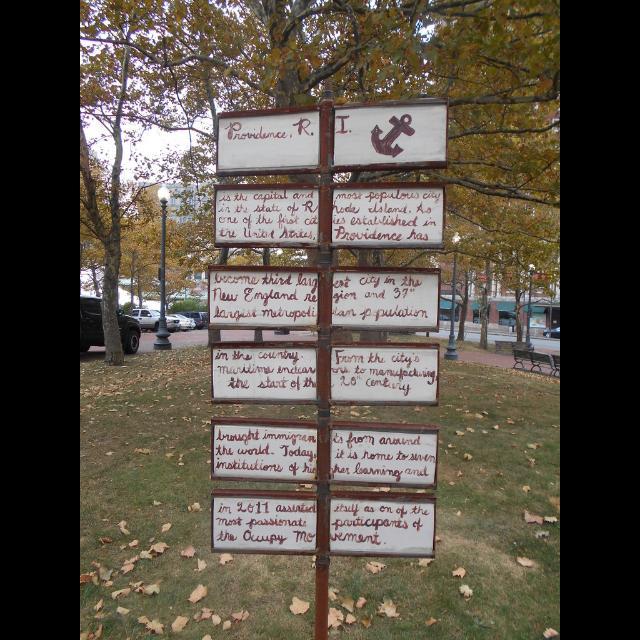 Providence, R. I.
is the capital and most populous city
in the state of Rhode Island. As
one of the first cities established in
the United States, Providence has
become third largest city in the
New England region and 37th
largest metropolitan population
in the country. From the city's
maritime endeavors to manufacturing
the start of the 20th century
brought immigrants from around
the world. Today, it is home to seven
institutions of higher learning and
in 2011 asserted itself as on of the
most passionate participants of
the Occupy Movement.